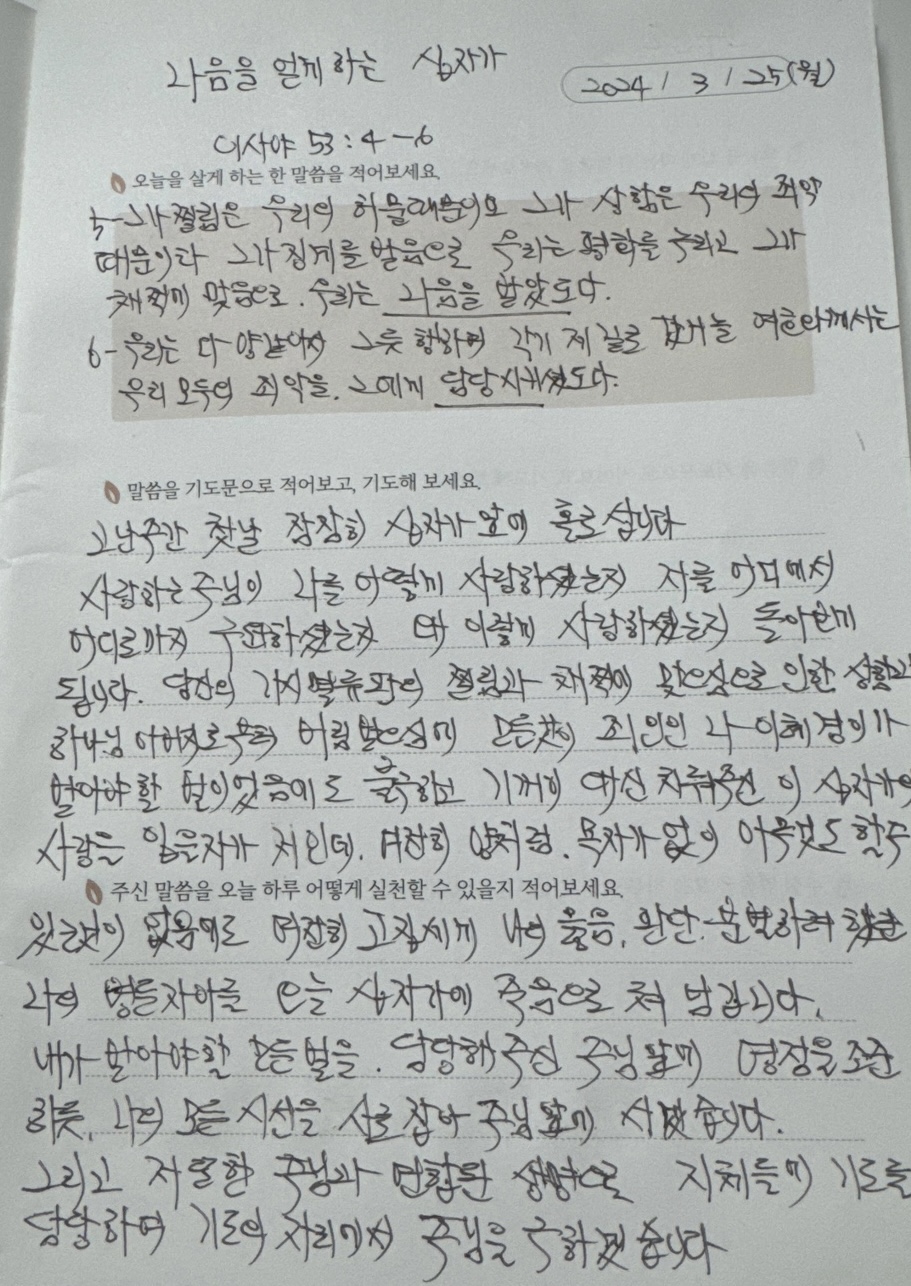 나음을 얻게 하는 십자가
2024 / 3 / 25 (월)
이사야 53 : 4 - 6
오늘을 살게 하는 한 말씀을 적어보세요.
5- 그가 찔림은 우리의 허물때문이요 그가 상함은 우리의 죄악
때문이라 그가 징계를 받음으로 우리는 평화를 누리고 그가
채찍에 맞음으로. 우리는 나음을 받았도다.
6- 우리는 다 양같아서 그릇 행하며 각기 제 길로 갔거늘 여호와께서는
우리 모두의 죄악을. 그에게 담당시키셨도다.
말씀을 기도문으로 적어보고, 기도해 보세요.
고난주간 첫날 잠잠히 십자가 앞에 홀로 섭니다
사랑하는 주님이 나를 어떻게 사랑하셨는지 저를 어디에서
어디로까지 구원하셨는지 왜 이렇게 사랑하셨는지 돌아보게
됩니다. 당신의 가시 면류관의 찔림과 채찍에 맞으심으로 인한 상함과
하나님 아버지로부터 버림 받으심에 모든것이 죄인인 나 이혜경이가
받아야 할 벌이었음에도 불구하고 기꺼이 대신 치뤄주신 이 십자가의
사랑을 입은자가 저인데. 여전히 양처럼. 목자가 없이 아무것도 할수
주신 말씀을 오늘 하루 어떻게 실천할 수 있을지 적어보세요.
있는것이 없음에도 여전히 고집세게 나의 옳음, 판단. 분별하려 했던
나의 병든자아를 오늘 십자가에 죽음으로 쳐 넘깁니다.
내가 받아야할 모든벌을. 담당해주신 주님앞에 영점을 조준
하듯, 나의 모든 시선을 사로잡아 주님앞에 서겠습니다.
그리고 저 또한 주님과 연합된 생명으로 지체들의 기도를
담당하며 기도의 자리에서 주님을 구하겠습니다